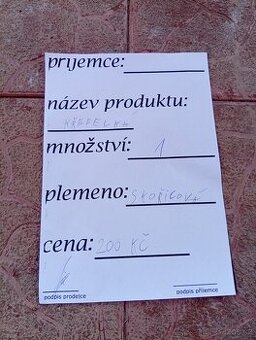 příjemce:
název produktu:
KŘEPELKA
množství: 1
plemeno: SKOŘICOVÁ
cena: 200 KČ
podpis prodejce podpis příjemce